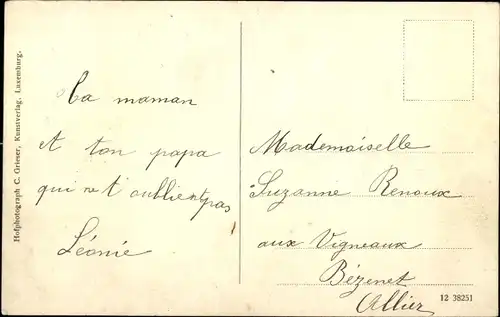 Hofphotograph C. Grieser, Kunstverlag, Luxemburg.
Ta maman
et ton papa
qui ne t'oublient pas
Léonie
Mademoiselle
Suzanne Renoux
aux Vigneaux
Bézenet
Allier
12 38251